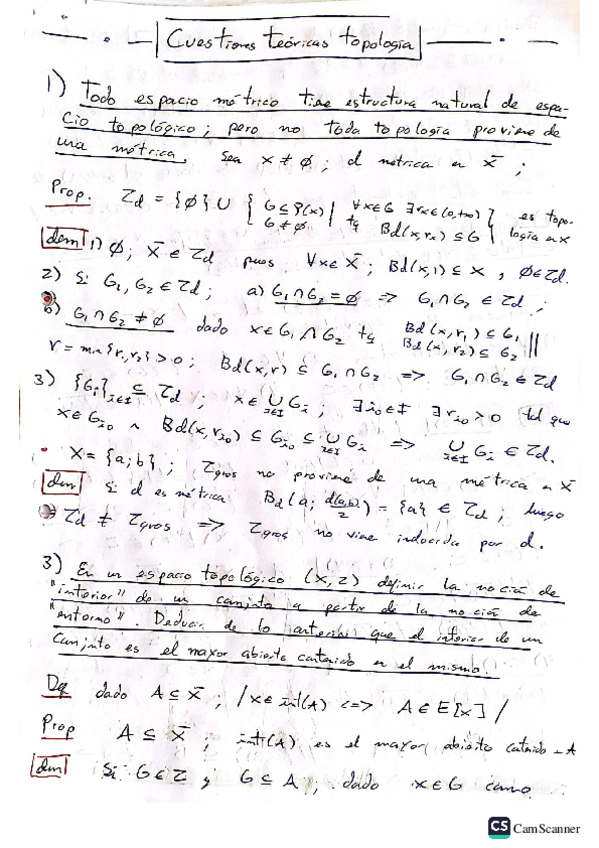 Cuestiones teóricas topología
1) Todo espacio métrico tiene estructura natural de espa-
cio topológico; pero no toda topología proviene de
una métrica. Sea X ≠ ∅; d métrica en X;
Prop. τd = {∅} ∪ { G ⊆ P(X) G ≠ ∅ | ∀x∈G ∃rx∈(0,+∞) tq Bd(x,rx) ⊆ G } es topo-
logía en X
dem 1) ∅; X ∈ τd pues ∀x∈X; Bd(x,1) ⊆ X, ∅∈τd.
2) Si G1, G2 ∈ τd; a) G1∩G2 = ∅ => G1∩G2 ∈ τd;
b) G1∩G2 ≠ ∅ dado x∈G1∩G2 tq Bd(x,r1) ⊆ G1 Bd(x,r2) ⊆ G2 ||
r = min{r1,r2} > 0; Bd(x,r) ⊆ G1∩G2 => G1∩G2 ∈ τd
3) {Gi}i∈I ⊆ τd; x∈ ∪i∈I Gi; ∃i0∈I ∃ri0>0 tal que
x∈Gi0 ∧ Bd(x,ri0) ⊆ Gi0 ⊆ ∪i∈I Gi => ∪i∈I Gi ∈ τd.
• X = {a;b}; τgros no proviene de una métrica en X
dem Si d es métrica Bd(a; d(a,b)/2) = {a} ∈ τd; luego
=> τd ≠ τgros => τgros no viene inducida por d.
3) En un espacio topológico (X,τ) definir la noción de
"interior" de un conjunto a partir de la noción de
"entorno". Deducir de lo anterior que el interior de un
conjunto es el mayor abierto contenido en el mismo.
Def dado A⊆X; /x∈int(A) <=> A∈E[x]/
Prop A⊆X; int(A) es el mayor abierto contenido en A
dem Si G∈τ y G⊆A; dado x∈G como
CS CamScanner